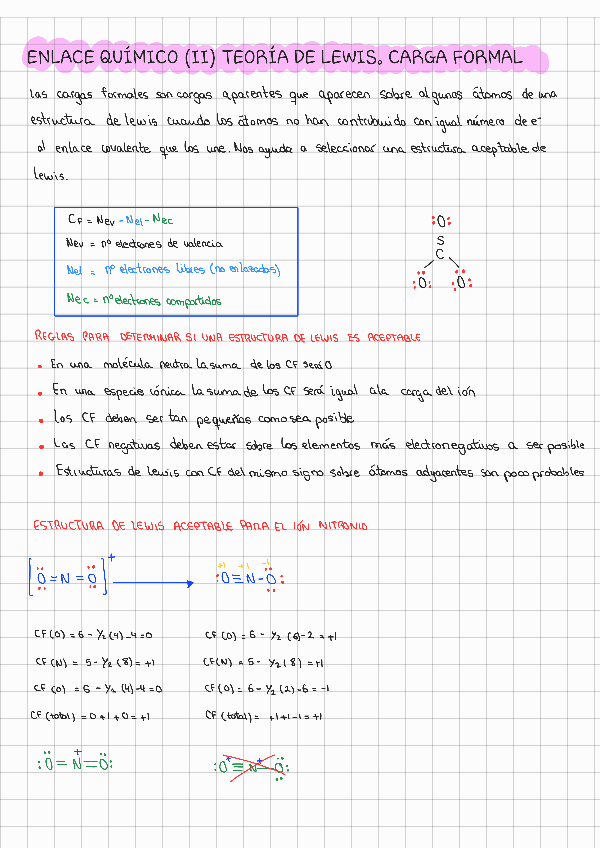 ENLACE QUÍMICO (II) TEORÍA DE LEWIS. CARGA FORMAL
Las cargas formales son cargas aparentes que aparecen sobre algunos átomos de una
estructura de lewis cuando los átomos no han contribuido con igual número de e-
al enlace covalente que los une. Nos ayuda a seleccionar una estructura aceptable de
lewis.
CF = Nev - Nel - Nec
Nev = nº electrones de valencia
Nel = nº electrones libres (no enlazados)
Nec = nº electrones compartidos
:O:
S
C
:O: :O:
REGLAS PARA DETERMINAR SI UNA ESTRUCTURA DE LEWIS ES ACEPTABLE
• En una molécula neutra la suma de los CF será 0
• En una especie iónica la suma de los CF será igual a la carga del ión
• Los CF deben ser tan pequeñas como sea posible
• Las CF negativas deben estar sobre los elementos más electronegativos a ser posible
• Estructuras de lewis con CF del mismo signo sobre átomos adyacentes son poco probables
ESTRUCTURA DE LEWIS ACEPTABLE PARA EL IÓN NITRONIO
[O = N = O]+
+1 +1 -1
:O≡N-O:
CF(O) = 6 - 1/2 (4) - 4 = 0
CF (O) = 6 - 1/2 (6) - 2 = +1
CF (N) = 5 - 1/2 (8) = +1
CF(N) = 5 - 1/2 (8) = +1
CF (O) = 6 - 1/2 (4) - 4 = 0
CF(O) = 6 - 1/2 (2) - 6 = -1
CF (total) = 0 + 1 + 0 = +1
CF (total) = +1+1-1 = +1
+
:O = N = O:
+ +
:O ≡ N - O: